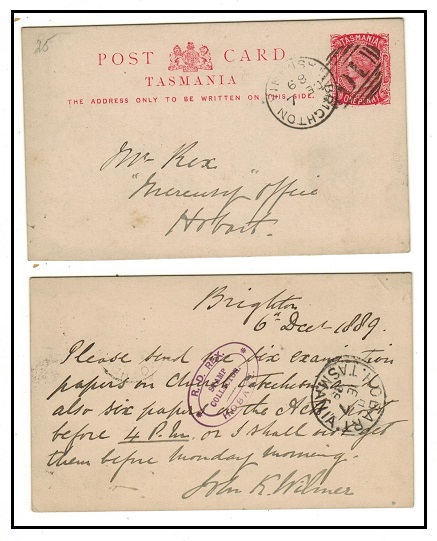 25
POST CARD
TASMANIA
THE ADDRESS ONLY TO BE WRITTEN ON THIS SIDE.
TASMANIA
ONE PENNY
BRIGHTON
Mr Rex
"Mercury" Office
Hobart.
Brighton
6th Dec 1889.
Please send me six examination
papers on Church Catechism
also six papers on the Acts
before 4 P.M. or I shall not get
them before Monday morning.
John K. Wilmer
R.D. REX
STAMP
COLLECTOR
HOBART
HOBART
TASMANIA